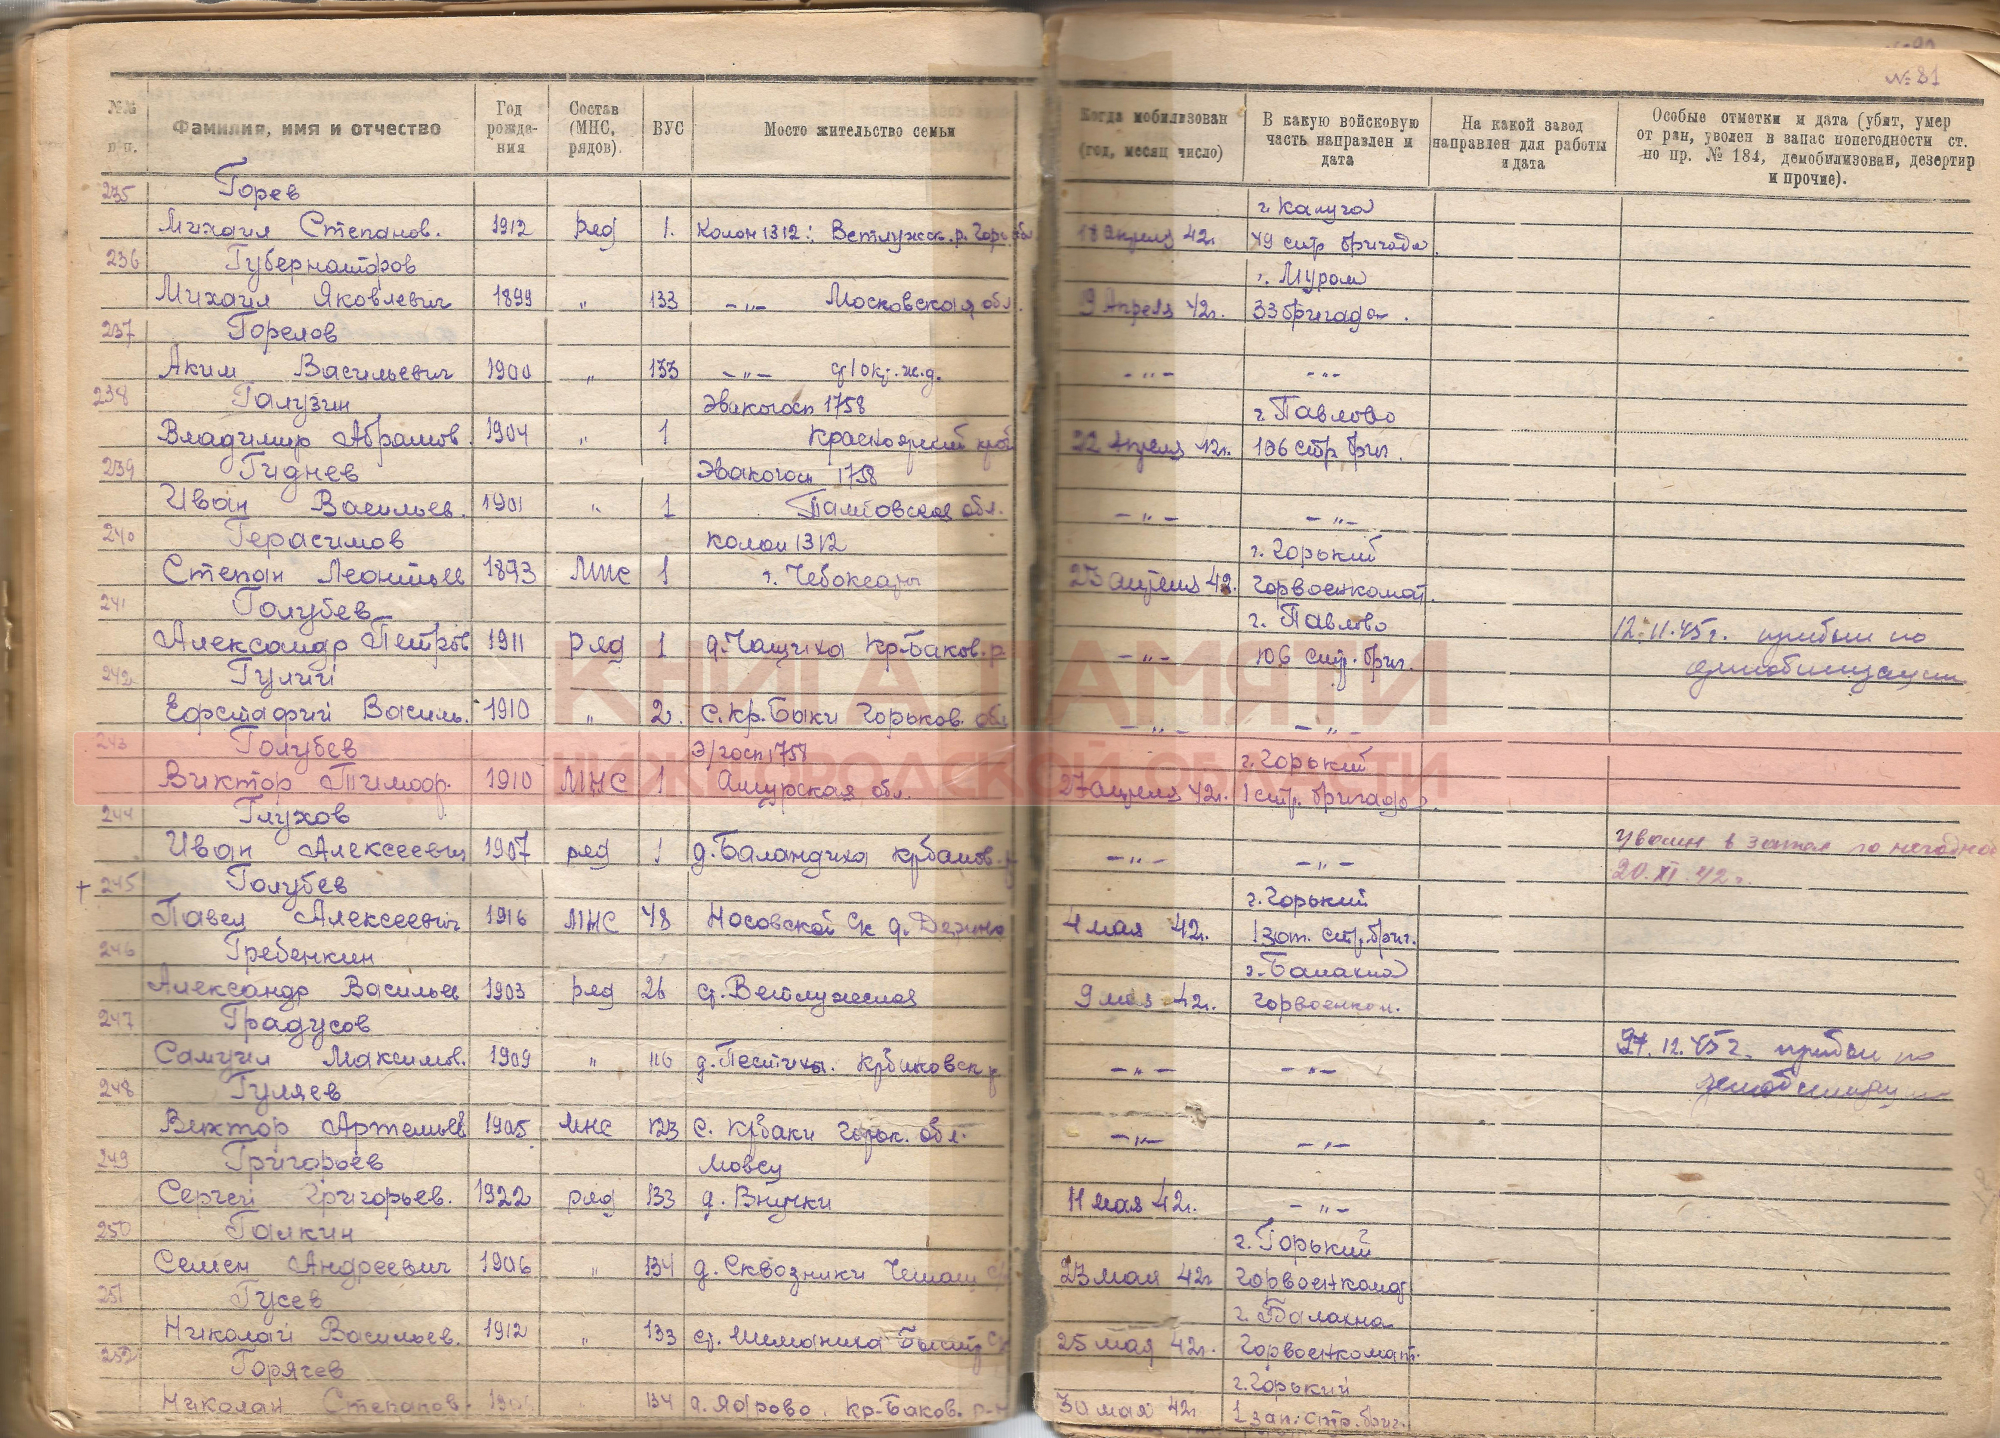 № 81
№№ п п.
Фамилия, имя и отчество
Год рожде- ния
Состав (МНС, рядов).
ВУС
Мосто жительство семьи
Когда мобилизован (год, месяц число)
В какую войсковую часть направлен и дата
На какой завод направлен для работы и дата
Особые отметки и дата (убит, умер от ран, уволен в запас по негодности ст. по пр. № 184, демобилизован, дезертир и прочие).
235 Горев г. Калуга
Михаил Степанов. 1912 ряд 1. Колон 1312: Ветлужск. р. Горь обл 18 апреля 42г. 49 стр бригада
236 Губернаторов г. Муром
Михаил Яковлевич 1899 " 133 -"- Московская обл. 19 Апреля 42г. 33 бригада.
237 Горелов
Аким Васильевич 1900 " 133 -"- ж.д. -"- -"-
238 Галузин Эвакогосп 1758 г. Павлово
Владимир Абрамов. 1904 " 1 Красноярский край 22 Апреля 42г. 106 стр бриг.
239 Гиднев Эвакогосп 1758
Иван Васильев. 1901 " 1 Тамбовская обл. -"- -"-
240 Герасимов колон 1312 г. Горький
Степан Леонтьев 1893 МНС 1 г. Чебоксары 23 апреля 42г. Горвоенкомат.
241 Голубев г. Павлово
Александр Петров 1911 ряд 1 д. Чащиха Кр-Баков. р -"- 106 стр. бриг. 12.11.45г. прибыл по
242 Гулий демобилизации
Евстафий Василь. 1910 " 2. с. Кр. Баки Горьков. обл -"- -"-
243 Голубев Э/госп 1758 г. Горький
Виктор Тимоф. 1910 МНС 1 Амурская обл. 27 апреля 42г. 1 стр. бригада
244 Глухов
Иван Алексеевич 1907 ряд 1 д. Баландиха крбаков. р -"- -"- уволен в запас по негодност
+ 245 Голубев г. Горький 20.XI.42г.
Павел Алексеевич 1916 МНС 48 Носовской С/с д. Дерино 4 мая 42г. 1 зап. стр. бриг.
246 Гребенкин г. Балахна
Александр Васильев 1903 ряд 26 ст. Ветлужская 9 мая 42г. Горвоенком.
247 Градусов
Самуил Максимов. 1909 " 116 д. Пестиха. Крбаковск р -"- -"- 27.12.45г. прибыл по
248 Гуляев демобилизации
Виктор Артемьев 1905 МНС 123 с. Крбаки Горьк. обл. -"- -"-
249 Григорьев
Сергей Григорьев. 1922 ряд 133 д. Внучки 11 мая 42г. -"-
250 Галкин г. Горький
Семен Андреевич 1906 " 134 д. Сквозники 23 мая 42г Горвоенкомат
251 Гусев г. Балахна
Николай Васильев. 1912 " 133 ст. Шеманиха 25 мая 42г. Горвоенкомат.
252 Горячев г. Горький
Николай Степанов. 134 Кр-Баков. р-н 30 мая 42г. 1 зап. стр. бриг.
КНИГА ПАМЯТИ
НИЖЕГОРОДСКОЙ ОБЛАСТИ